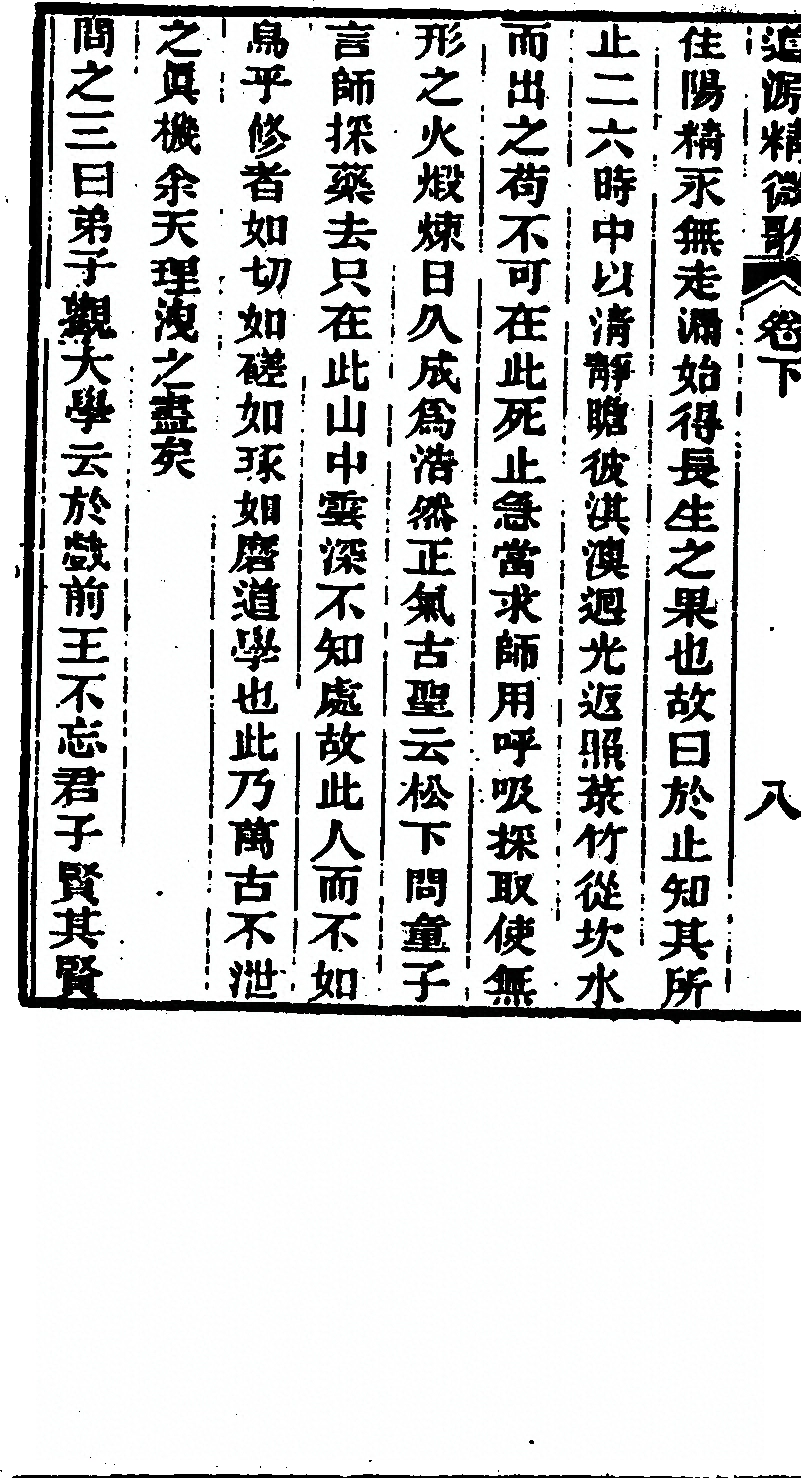 道源精微歌 卷下 八
住陽精永無走漏始得長生之果也故曰於止知其所
止二六時中以清靜瞻彼淇澳迴光返照菉竹從坎水
而出之苟不可在此死止急當求師用呼吸採取使無
形之火煅煉日久成爲浩然正氣古聖云松下問童子
言師採藥去只在此山中雲深不知處故此人而不如
鳥乎修者如切如磋如琢如磨道學也此乃萬古不泄
之眞機余天理洩之盡矣
問之三曰弟子觀大學云於戲前王不忘君子賢其賢